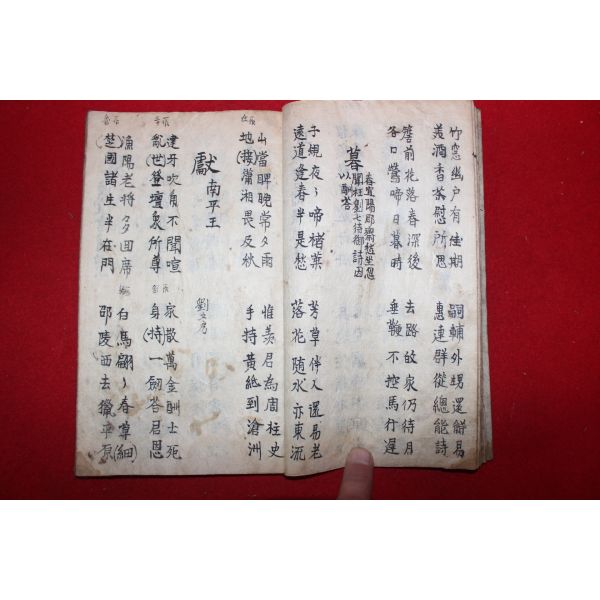 竹窓幽户有佳期
美酒香茶慰所思
嗣輔外甥還解易
惠連群從總能詩
簷前花落春深後
谷口鶯啼日暮時
去路故泉仍待月
垂鞭不控馬行遲
暮
春宜陽郡齋愁坐忽
聞枉劉七侍御詩因
以酬答
子規夜々啼楮葉
遠道逢春半是愁
芳草伴人還易老
落花随水亦東流
山當睥睨常多雨
地(接)瀟湘畏及秋
惟羨君為周柱史
手持黃紙到滄洲
獻 南平王
劉文房
建牙吹角不聞喧
亂(世)登壇衆所尊
家散萬金酬士死
身(持)一劔答君恩
漁陽老將多回席
楚國諸生半在門
白馬翩々春草(細)
邵陵西去獵平原